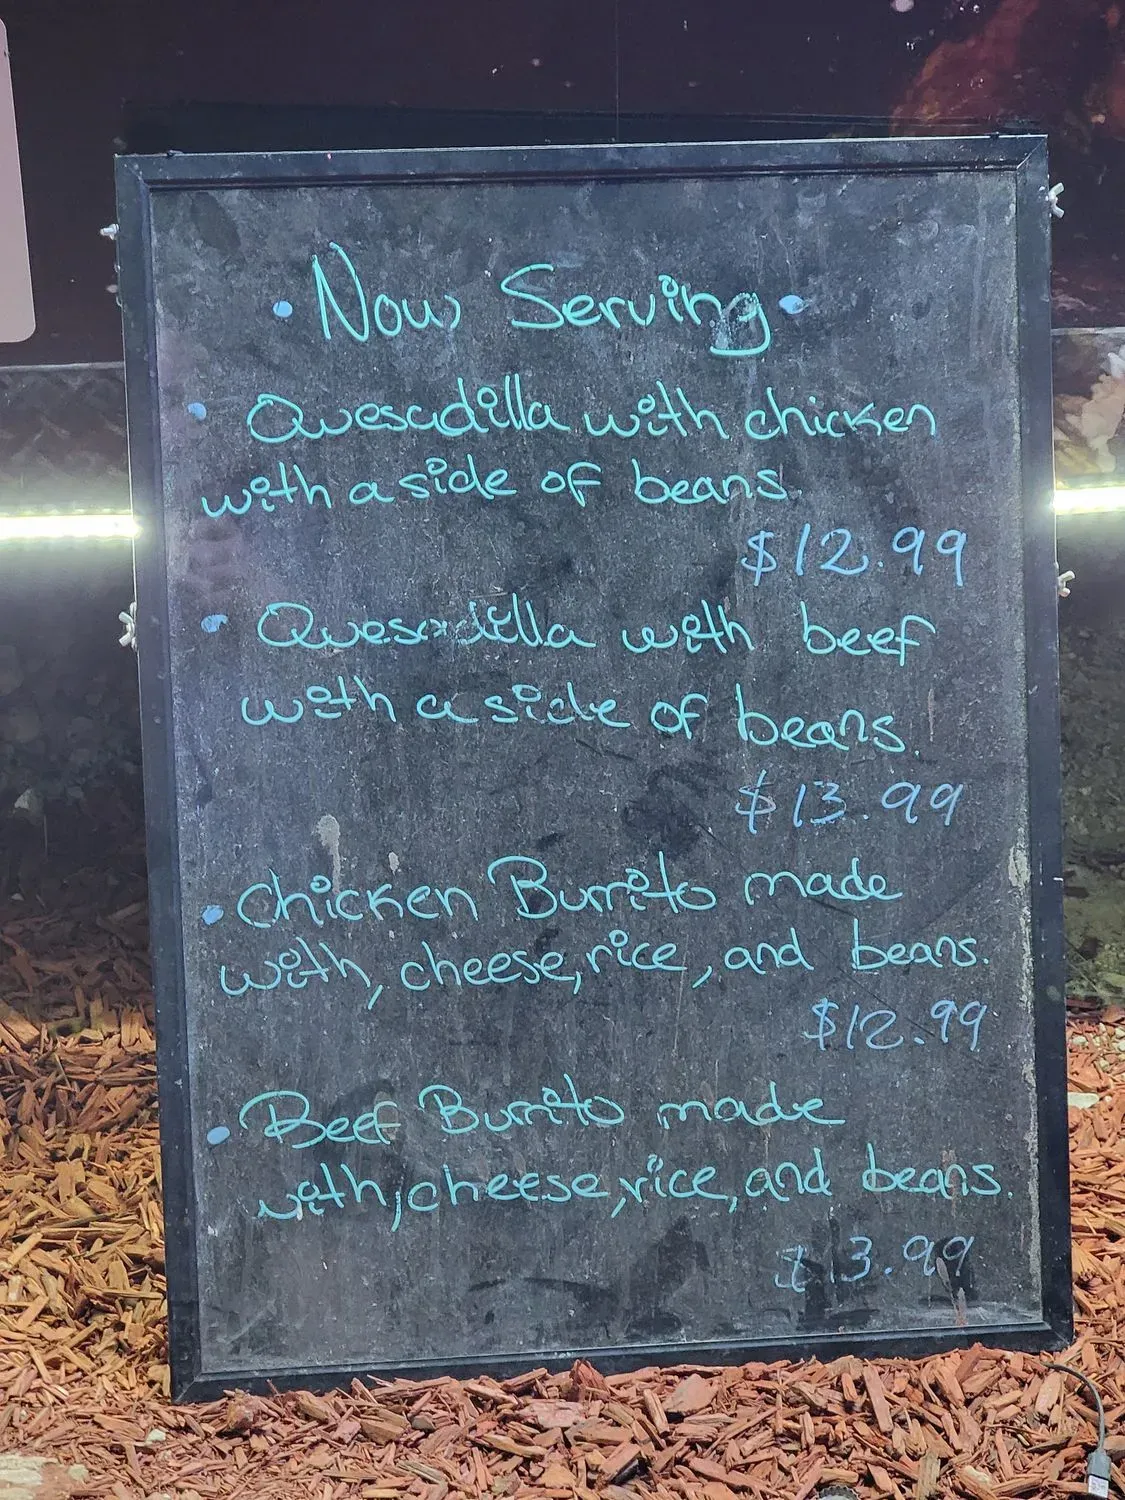 • Now Serving •
• Quesadilla with chicken
with a side of beans.
$12.99
• Quesadilla with beef
with a side of beans.
$13.99
• Chicken Burrito made
with, cheese, rice, and beans.
$12.99
• Beef Burrito made
with, cheese, rice, and beans.
$13.99